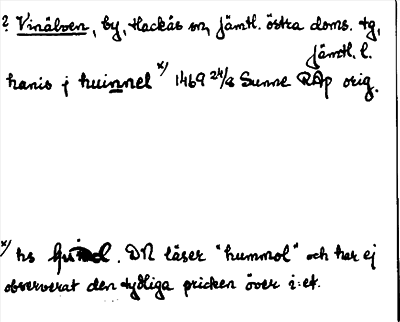 ? Vinälven, by, Hackås sn, Jämtl. östra doms. tg,
Jämtl. l.
hanis j huinnel x/ 1469 24/8 Sunne RAp orig.
x/ hs . DN läser "hummol" och har ej
observerat den tydliga pricken över i:et.